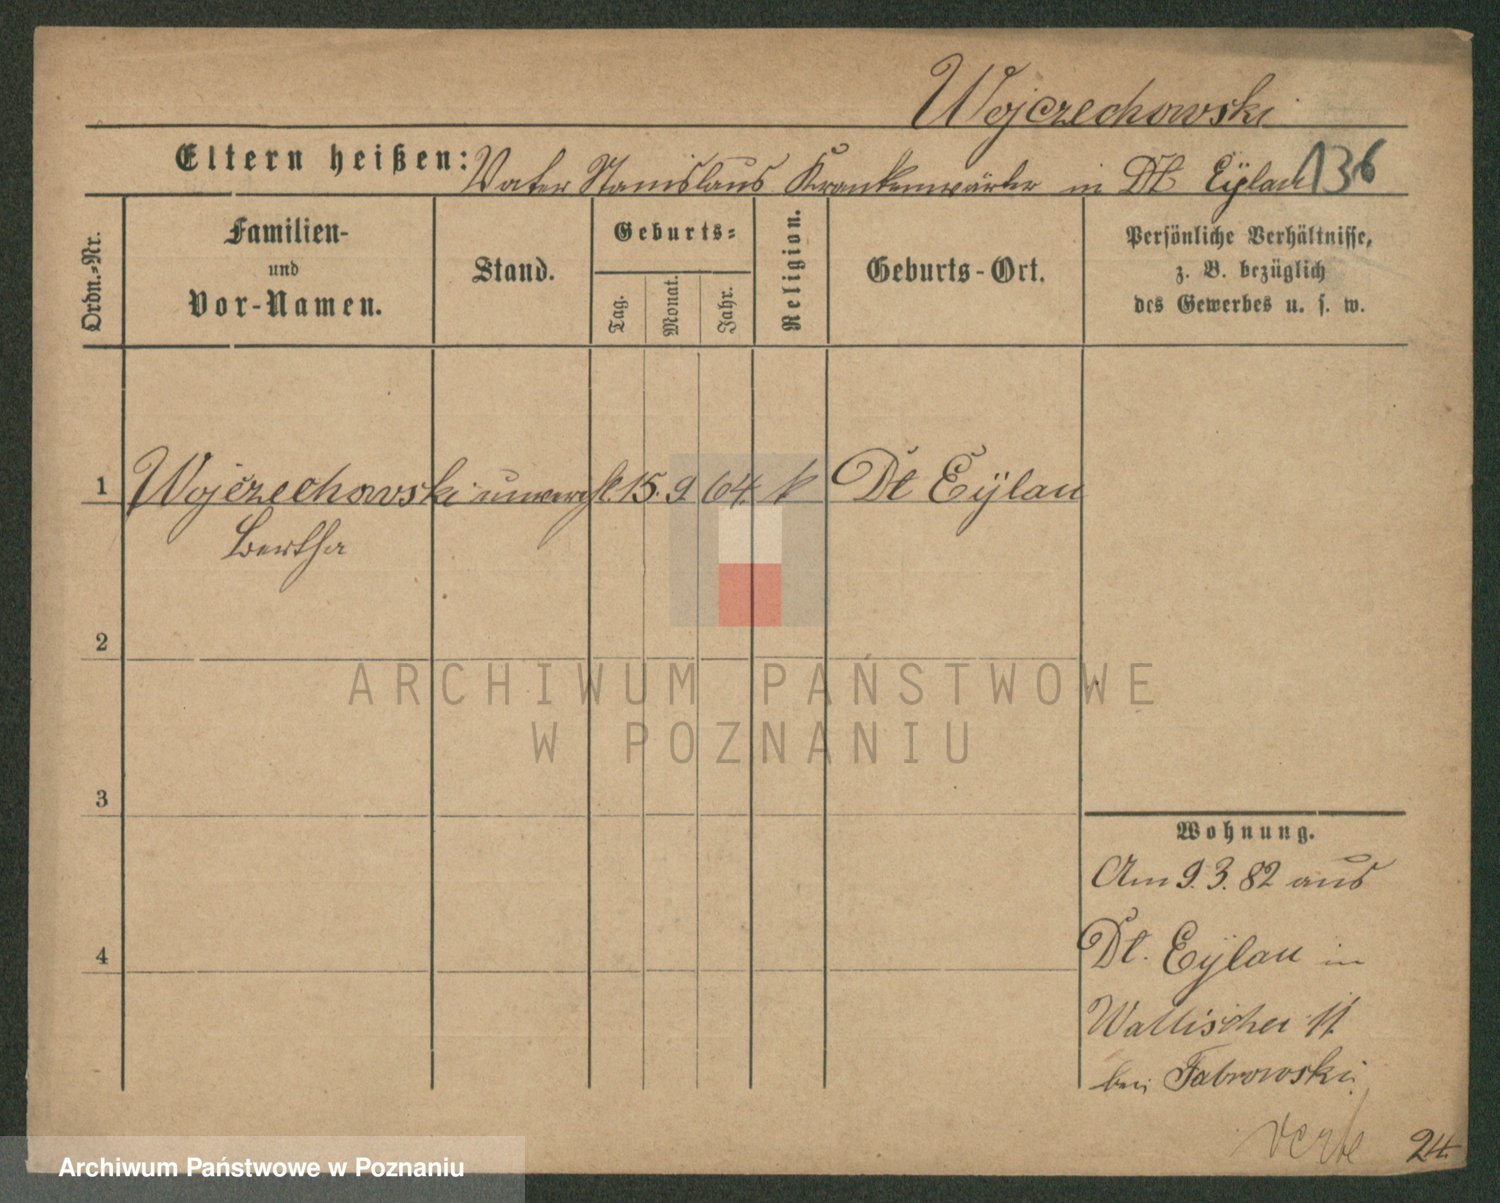 Wojczechowski
Eltern heißen: Vater Stanislaus Krankenwärter in Dt Eÿlau 136
Ordn.-Nr.
Familien-
und
Vor-Namen.
Stand.
Geburts-
Tag.
Monat.
Jahr.
Religion.
Geburts-Ort.
Persönliche Verhältnisse,
z. B. bezüglich
des Gewerbes u. s. w.
1 Wojczechowski 15. 9 64. k Dt Eÿlau
Bertha
2
3
4
ARCHIWUM PAŃSTWOWE
W POZNANIU
Wohnung.
Am 9.3.82 aus
Dt. Eÿlau in
Wallischei 11
bei Fabrowski
24
Archiwum Państwowe w Poznaniu